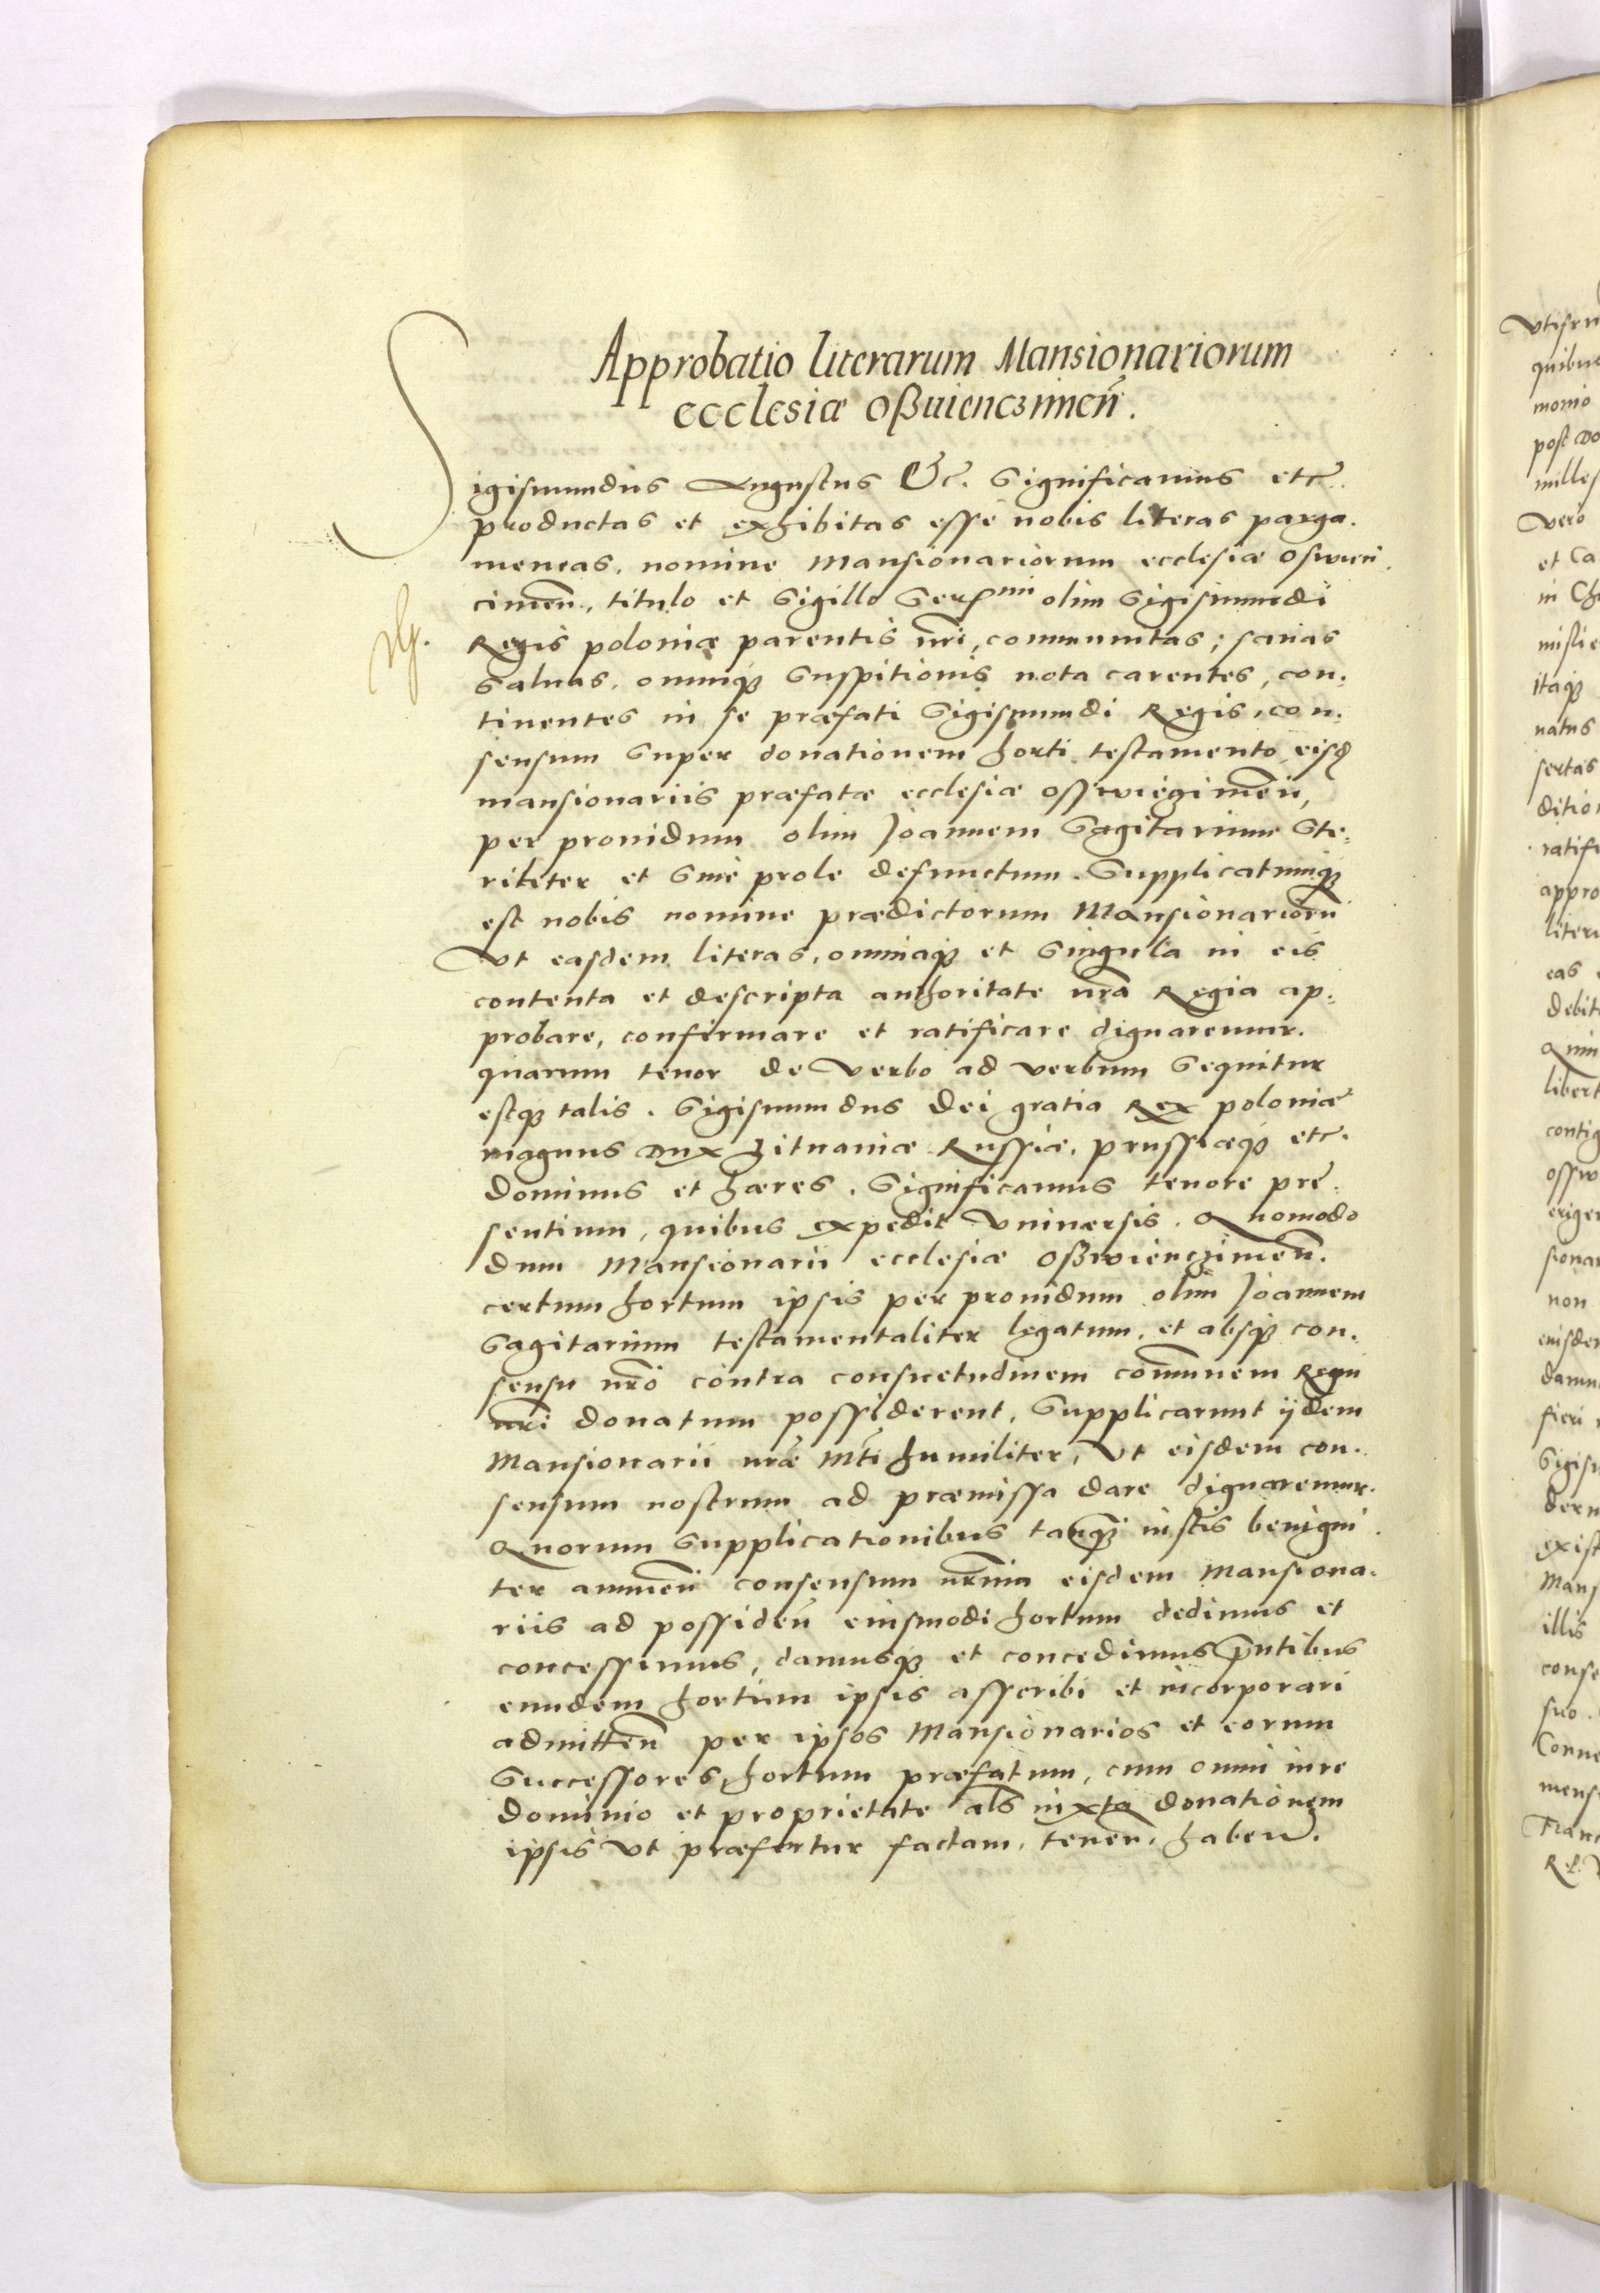 Approbatio literarum Mansionariorum
ecclesiæ Oßwienczimen̄.
Sigismundus Augustus &c. Significamus etc.
productas et exhibitas esse nobis literas parga-
meneas, nomine Mansionariorum ecclesiæ Oswien-
cimen̄., titulo et Sigillo Serᵐⁱ olim Sigismundi
Regis poloniæ parentis nr̄i, communitas; sanas
Saluas, omniq₃ Suspitionis nota carentes, con-
tinentes in se præfati Sigismundi Regis, con-
sensum Super donationem horti testamento eisd
mansionariis præfatæ ecclesiæ Osswiegimen̄,
per prouidum olim Joannem Sagitarium Ste-
riliter et Sine prole defunctum. Supplicatumq₃
est nobis nomine prædictorum Mansionariorū
Vt easdem literas, omniaq₃ et Singula in eis
contenta et descripta authoritate nr̄a Regia ap-
probare, confirmare et ratificare dignaremur.
quarum tenor de Verbo ad verbum Sequitur
estq₃ talis. Sigismundus Dei gratia Rex poloniæ
magnus Dux Lituaniæ Russiæ, prussiæq₃ etc.
dominus et hæres. Significamus tenore præ-
sentium, quibus expedit Vniuersis. Quomodo
dum Mansionarii ecclesiæ Oßwienczimen̄.
certum hortum ipsis per prouidum olim Joannem
Sagitarium testamentaliter legatum, et absq₃ con-
sensu nr̄o contra consuetudinem com̄unem Regni
nr̄i donatum possiderent, Supplicarunt ijdem
Mansionarii nr̄æ Mti humiliter, Vt eisdem con-
sensum nostrum ad præmissa dare dignaremur.
Quorum Supplicationibus tanq₃ iustis benigni-
ter annuen̄ consensum nr̄um eisdem Mansiona-
riis ad possiden̄ eiusmodi hortum dedimus et
concessimus, damusq₃ et concedimus pn̄tibus
eundem hortum ipsis asscribi et incorporari
admitten̄ per ipsos Mansionarios et eorum
Successores, hortum præfatum, cum omni iure
dominio et proprietate als iuxta donationem
ipsis Vt præfertur factam, tenen̄. haben̄.